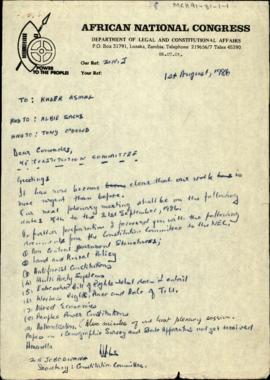 MCHA91-31-1-1
AFRICAN NATIONAL CONGRESS
DEPARTMENT OF LEGAL AND CONSTITUTIONAL AFFAIRS
P.O. Box 31791, Lusaka, Zambia, Telephone 219656/7 Telex 45390
POWER
TO THE PEOPLE!
Our Ref:
Your Ref:
1st August, 1986
TO: KADER ASMAL
AND TO: ALBIE SACHS
AND TO: TONY O'DOWD
Dear Comrades,
RE CONSTITUTION COMMITTEE
Greetings
It has now become clear that our work is
more urgent than before.
Our next plenary meeting shall be on the following
dates to the 21st September, 1986.
In further preparation I forward you with the following
documents from the Constitution Committee to the NEC.
On Central Government Structures;
Land and Rural Policy
Multi Party Systems
Bill of Rights
Workers Rights, Power and Role of T.U.
Mixed Economies
Peoples Power Constitutions
Also minutes of our last plenary session.
Paper on: Demographic Survey and State Apparatus not yet received
Amandla
Z N JOBODWANA
Secretary: Constitution Committee.